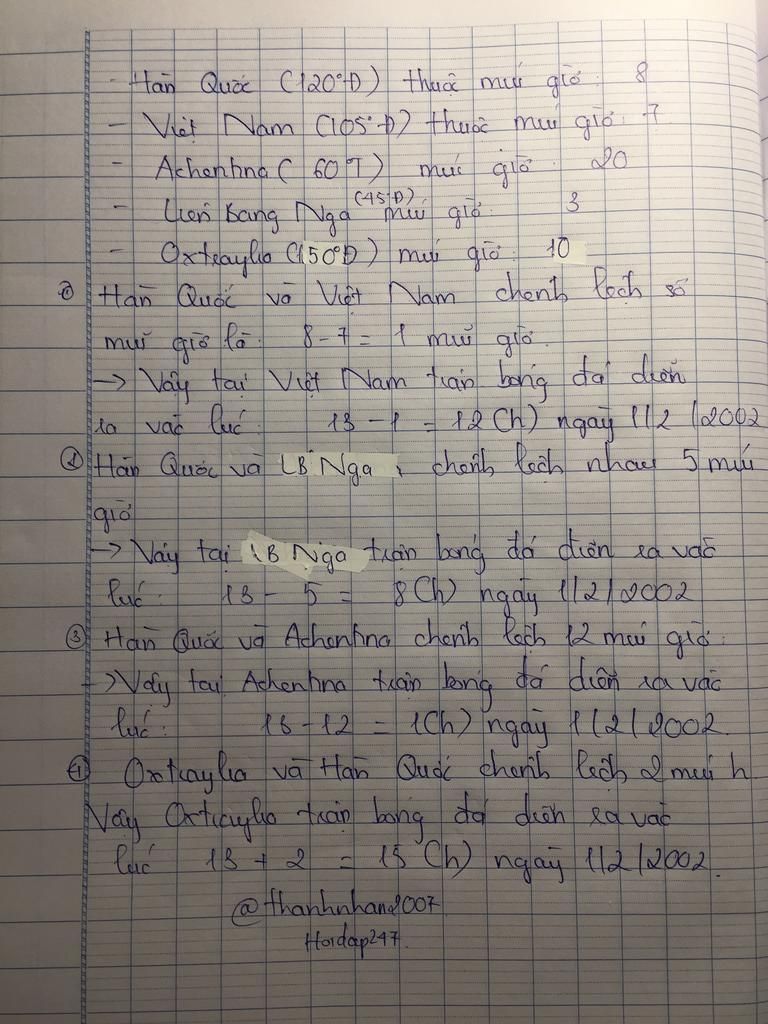 - Hàn Quốc (120°Đ) thuộc múi giờ: 8
- Việt Nam (105°Đ) thuộc múi giờ: 7
- Achentina (60T) múi giờ: 20
- Liên Bang Nga (45°Đ) múi giờ: 3
- Oxtraylia (150°Đ) múi giờ: 10
① Hàn Quốc và Việt Nam chênh lệch số
múi giờ là: 8-7 = 1 múi giờ.
→ Vậy tại Việt Nam trận bóng đá diễn
ra vào lúc: 13 - 1 = 12 (h) ngày 1/2/2002
② Hàn Quốc và LB Nga, chênh lệch nhau 5 múi
giờ
→ Vậy tại LB Nga trận bóng đá diễn ra vào
lúc: 13 - 5 = 8 (h) ngày 1/2/2002
③ Hàn Quốc và Achentina chênh lệch 12 múi giờ.
→ Vậy tại Achentina trận bóng đá diễn ra vào
lúc: 13-12 = 1(h) ngày 1/2/2002.
④ Oxtraylia và Hàn Quốc chênh lệch 2 múi h
Vậy Oxtraylia trận bóng đá diễn ra vào
lúc 13 + 2 = 15 (h) ngày 1/2/2002.
@thanhnhan2007.
Hoidap247.